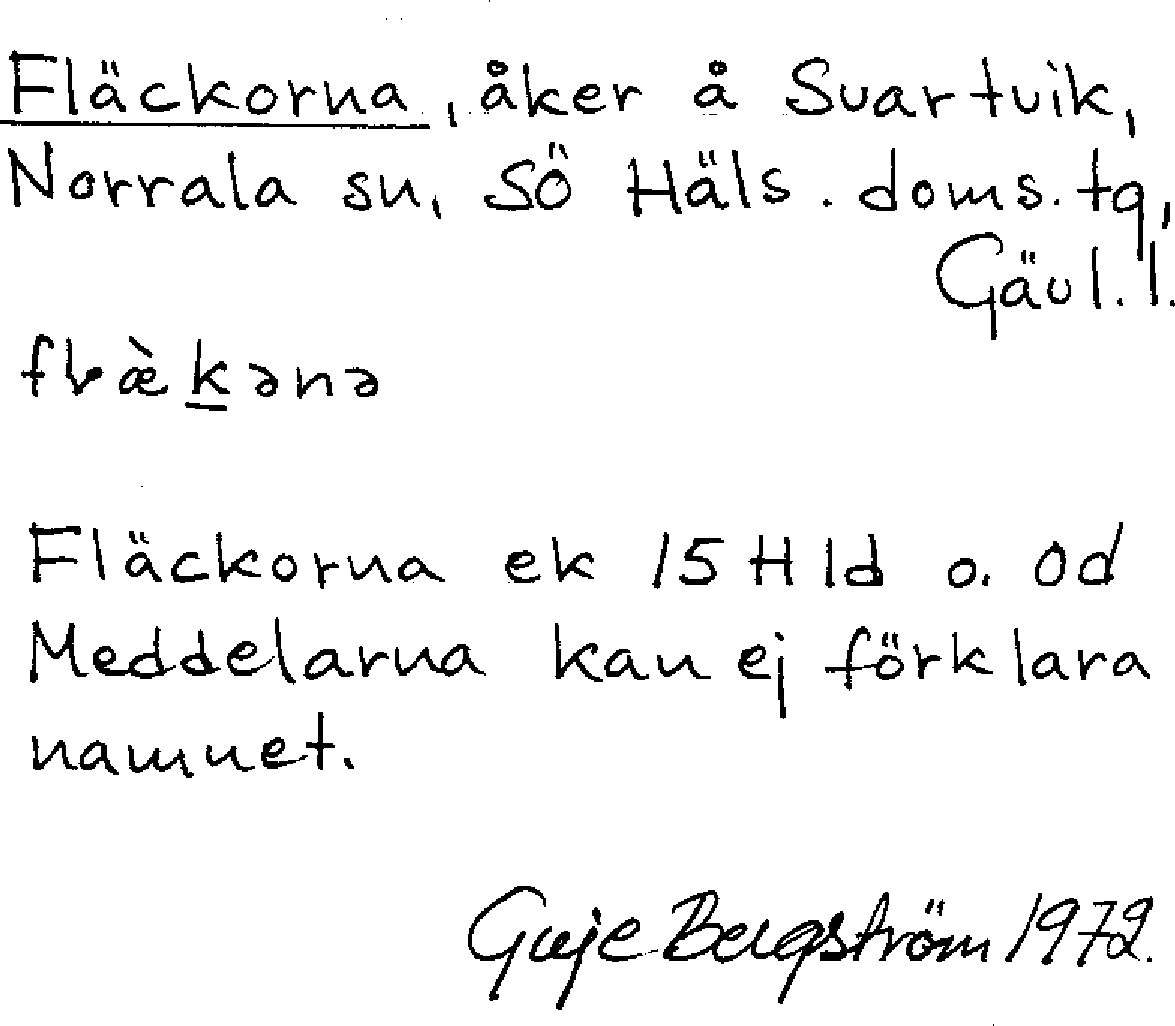 Fläckorna, åker å Svartvik,
Norrala sn, Sö Häls. doms. tg,
Gävl. l.
flæ̀kənə
Fläckorna ek 15 H ld o. Od
Meddelarna kan ej förklara
namnet.
Guje Bergström 1972.